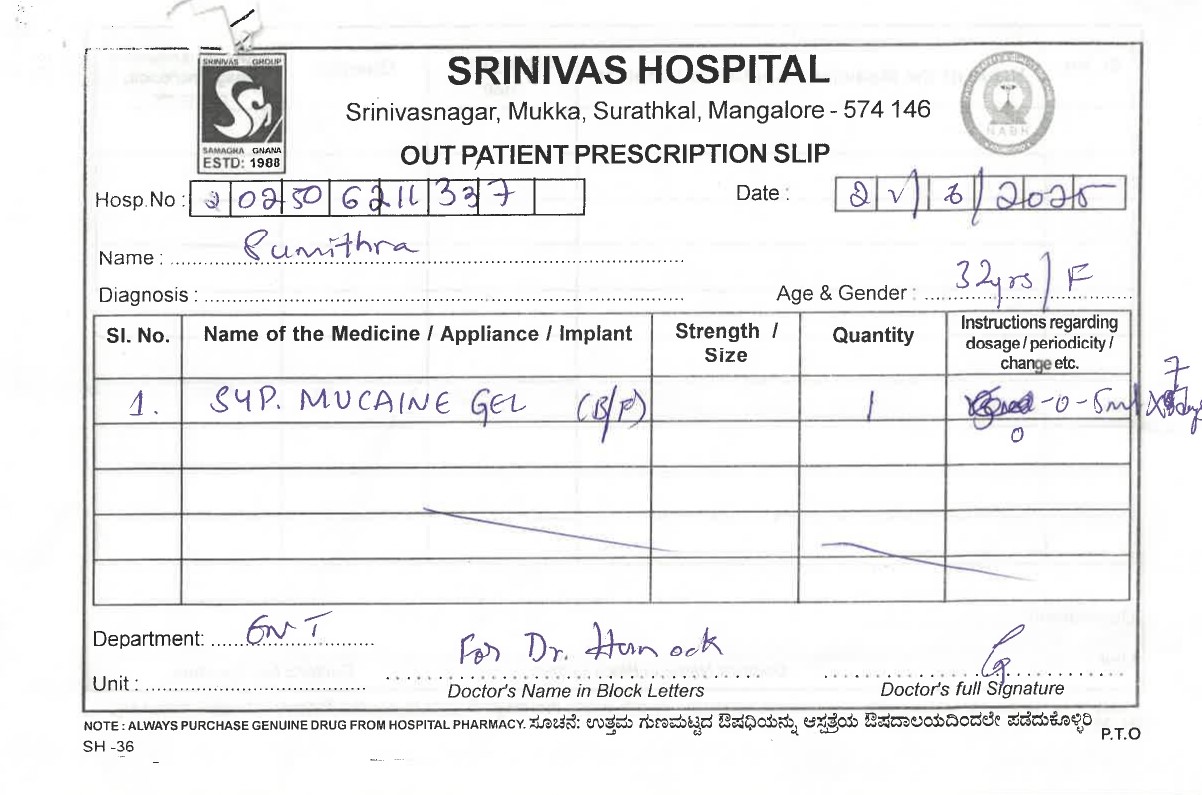 SRINIVAS GROUP
SAMAGRA GNANA
ESTD: 1988
SRINIVAS HOSPITAL
Srinivasnagar, Mukka, Surathkal, Mangalore - 574 146
NABH
OUT PATIENT PRESCRIPTION SLIP
Hosp.No : 20250621133 7
Date : 2025
Name : Sumithra
Diagnosis :
Age & Gender : 32yrs / F
Sl. No. Name of the Medicine / Appliance / Implant Strength / Size Quantity Instructions regarding dosage / periodicity / change etc.
1. SYP. MUCAINE GEL (B/F) 1 0 -0-5ml x 7 days
Department: ENT
For Dr.
Unit :
Doctor's Name in Block Letters
Doctor's full Signature
NOTE : ALWAYS PURCHASE GENUINE DRUG FROM HOSPITAL PHARMACY. ಸೂಚನೆ: ಉತ್ತಮ ಗುಣಮಟ್ಟದ ಔಷಧಿಯನ್ನು ಆಸ್ಪತ್ರೆಯ ಔಷದಾಲಯದಿಂದಲೇ ಪಡೆದುಕೊಳ್ಳಿರಿ
P.T.O
SH -36